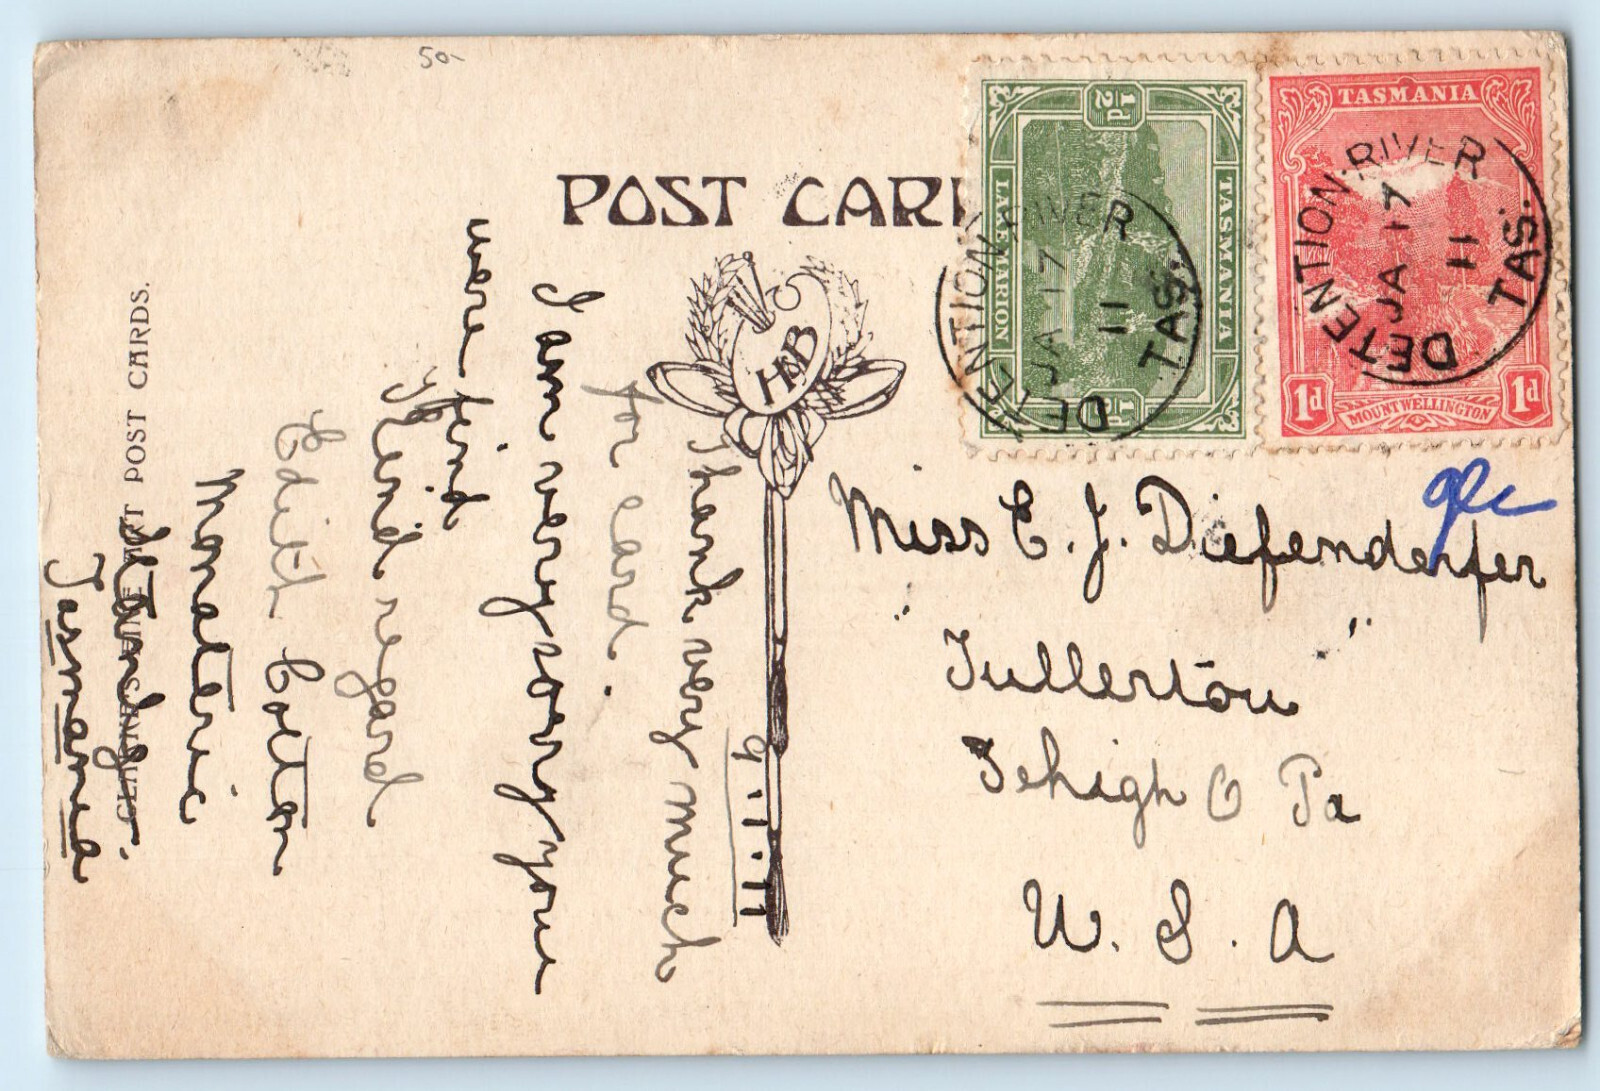 50-
POST CARD
TASMANIA
LAKE MARION
½d
½d
DETENTION RIVER
JA 17
11
TAS.
TASMANIA
MOUNT WELLINGTON
1d
1d
DETENTION RIVER
JA 17
11
TAS.
H&B
Miss E. J. Diefenderfer
Fullerton
Lehigh Pa
U. S. A
9.1.11
Thank very much
for card.
I am very sorry you
were
kind regard
Edith Cotton
Tasmania
POST CARDS.